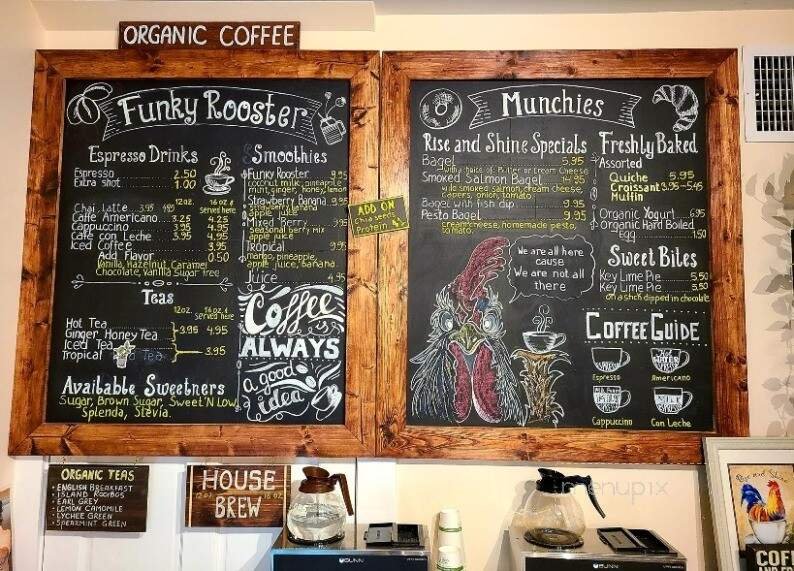 ORGANIC COFFEE
Funky Rooster
Espresso Drinks
Espresso 2.50
Extra shot 1.00
12oz. 16oz
served here
Chai Latte 3.95 4.95
Café Americano 3.25 4.25
Cappuccino 3.95 4.95
Cafe con Leche 3.95 4.95
Iced Coffee 3.95
Add Flavor 0.50
Vanilla, Hazelnut, Caramel
Chocolate, Vanilla Sugar free
Teas
12oz. 16oz
served here
Hot Tea
Ginger Honey Tea 3.95 4.95
Iced Tea
Tropical Tea 3.95
Available Sweetners
Sugar, Brown Sugar, Sweet'N Low,
Splenda, Stevia.
Smoothies
Funky Rooster 9.95
coconut milk, pineapple
mint, ginger, honey, lemon
Strawberry Banana 9.95
strawberry, banana
apple juice
Mixed Berry 9.95
Seasonal berry mix
apple juice
Tropical 9.95
mango, pineapple,
apple juice, banana
Juice 4.95
Coffee
is
ALWAYS
a good
idea
ADD ON
Chia seeds
Protein
Munchies
Rise and Shine Specials
Bagel 5.95
with choice of Butter or Cream Cheese
Smoked Salmon Bagel 14.95
wild smoked salmon, cream cheese,
capers, onion, tomato
Bagel with fish dip 9.95
Pesto Bagel 9.95
cream cheese, homemade pesto,
tomato.
We are all here
cause
We are not all
there
Freshly Baked
Assorted
Quiche 5.95
Croissant 3.95-5.45
Muffin
Organic Yogurt 6.95
Organic Hard Boiled
Egg 1.50
Sweet Bites
Key Lime Pie 5.50
Key Lime Pie 5.50
on a stick dipped in chocolate
COFFEE GUIDE
Espresso
HOT WATER
Americano
Cappuccino
MILK
Con Leche
ORGANIC TEAS
ENGLISH BREAKFAST
ISLAND ROOIBOS
EARL GREY
LEMON CAMOMILE
LYCHEE GREEN
SPEARMINT GREEN
HOUSE
12oz. 16oz.
BREW
BUNN
BUNN
menupix
Rise and Shine
COFF